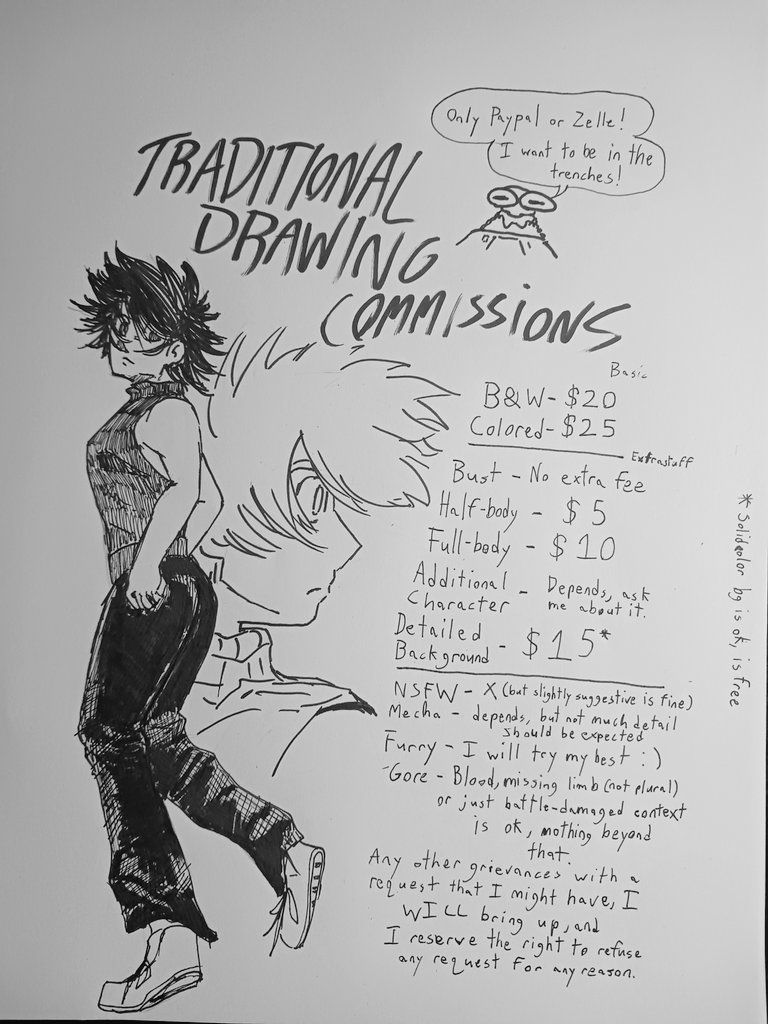 Only Paypal or Zelle!
I want to be in the
trenches!
TRADITIONAL
DRAWING
COMMISSIONS
Basic
B&W - $20
Colored - $25
Extrastuff
Bust - No extra fee
Half-body - $5
Full-body - $10
Additional Character - Depends, ask me about it.
Detailed Background - $15*
* Solid color bg is ok, is free
NSFW - X (but slightly suggestive is fine)
Mecha - depends, but not much detail
should be expected
Furry - I will try my best :)
Gore - Blood, missing limb (not plural)
or just battle-damaged context
is ok, nothing beyond
that.
Any other grievances with a
request that I might have, I
WILL bring up, and
I reserve the right to refuse
any request for any reason.